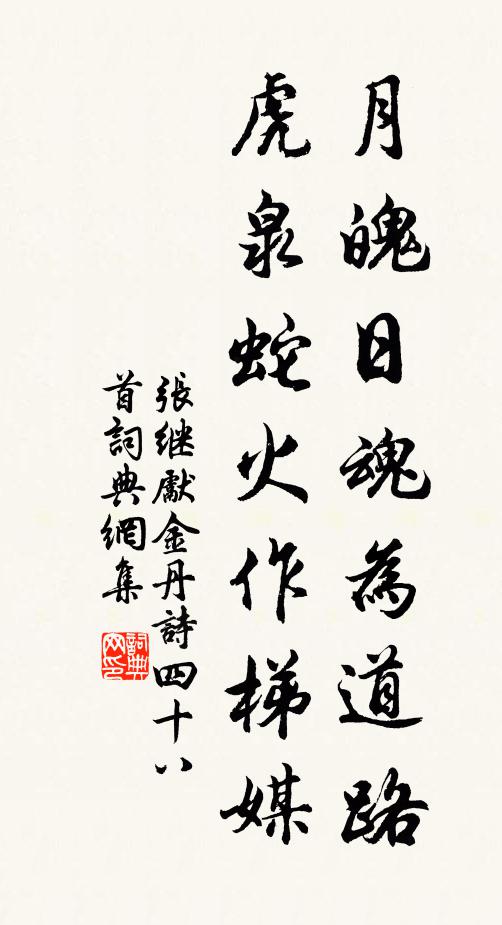 月魄日魂為道路
虎泉蛇火作梯媒
張繼獻金丹詩四十八
首詞典網集
詞典
网印